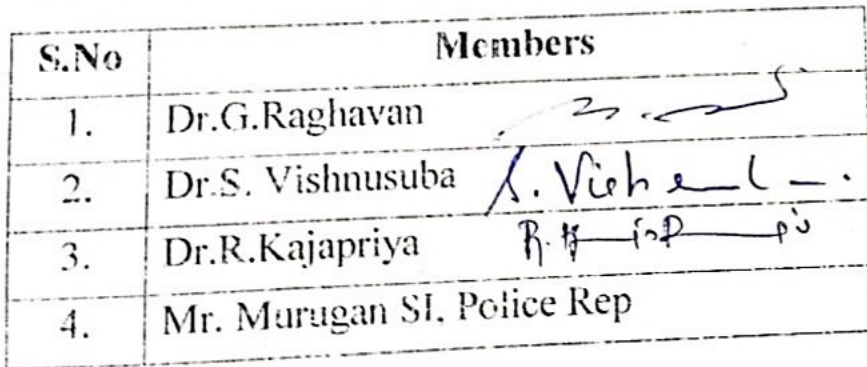 S.No Members
1. Dr.G.Raghavan
2. Dr.S. Vishnusuba S.
3. Dr.R.Kajapriya R.
4. Mr. Murugan SI, Police Rep